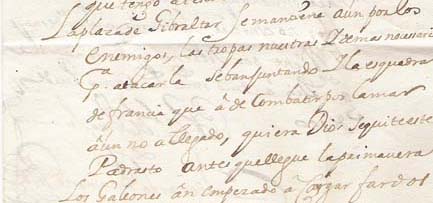 que tengo
La plaza de Gibraltar se mantiene aun por los
enemigos, las tropas nuestras y demas necessari
pª. atacarla se ban juntando y la esquadra
de francia que à de combatir por la mar
aun no a llegado, quiera Dios se quite este
Padrasto antes que llegue la primavera
Los Galeones àn empezado à cargar fardos